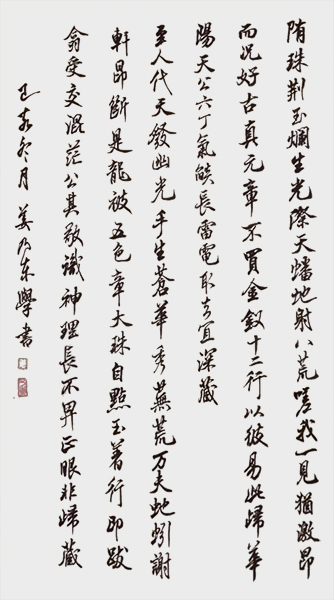 隋珠荆玉烂生光際天蟠地射八荒嗟我一見猶激昂
而况好古真元章不買金釵十二行以彼易此歸華
陽天公六丁氣燄長雷電取去宜深藏
至人代天發幽光手生蒼華秀蕪荒万夫蚍蚓謝
軒昂斷是龍袚五色章大珠自點玉著行即跋
翕受交混茫公其敬識神理長不畀正眼非歸藏
己亥冬月 姜乃東學書